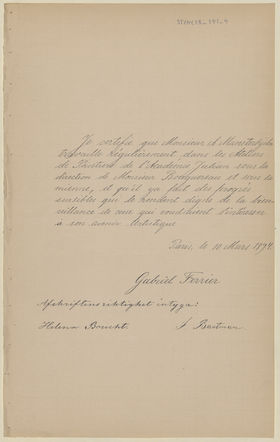 Je certifie que Monsieur
travaille régulièrement dans les Ateliers
de Peinture de l'Académie Julian sous la
direction de Monsieur Bouguereau et sous la
mienne, et qu'il y a fait des progrès
sensibles qui le rendent digne de la bien-
veillance de ceux qui voudraient s'intéresser
à son avenir Artistique
Paris, le 10 Mars 1894.
Gabriel Ferrier
Afskriftens riktighet intyga:
Helena